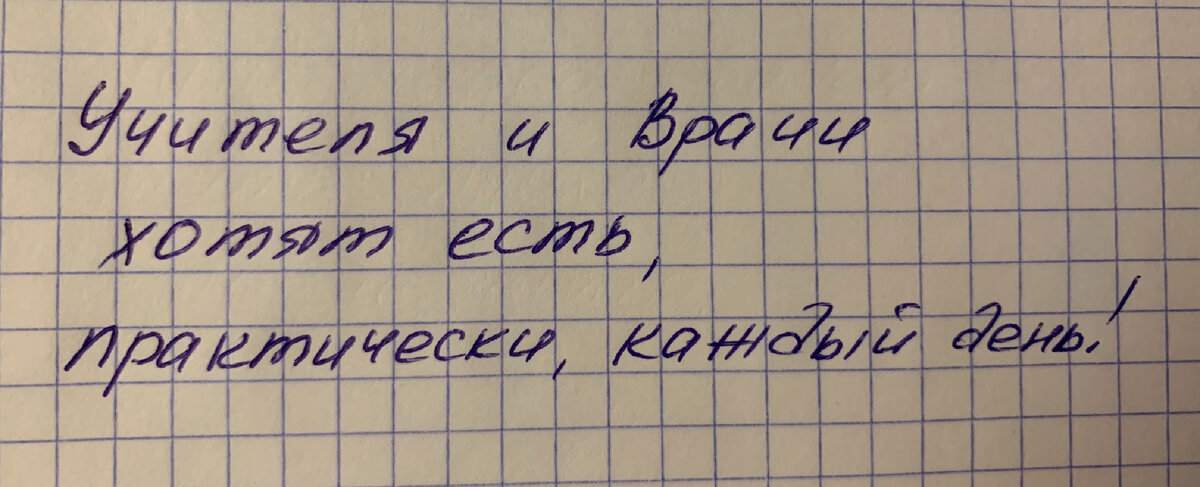 Учителя и Врачи
хотят есть,
практически, каждый день!